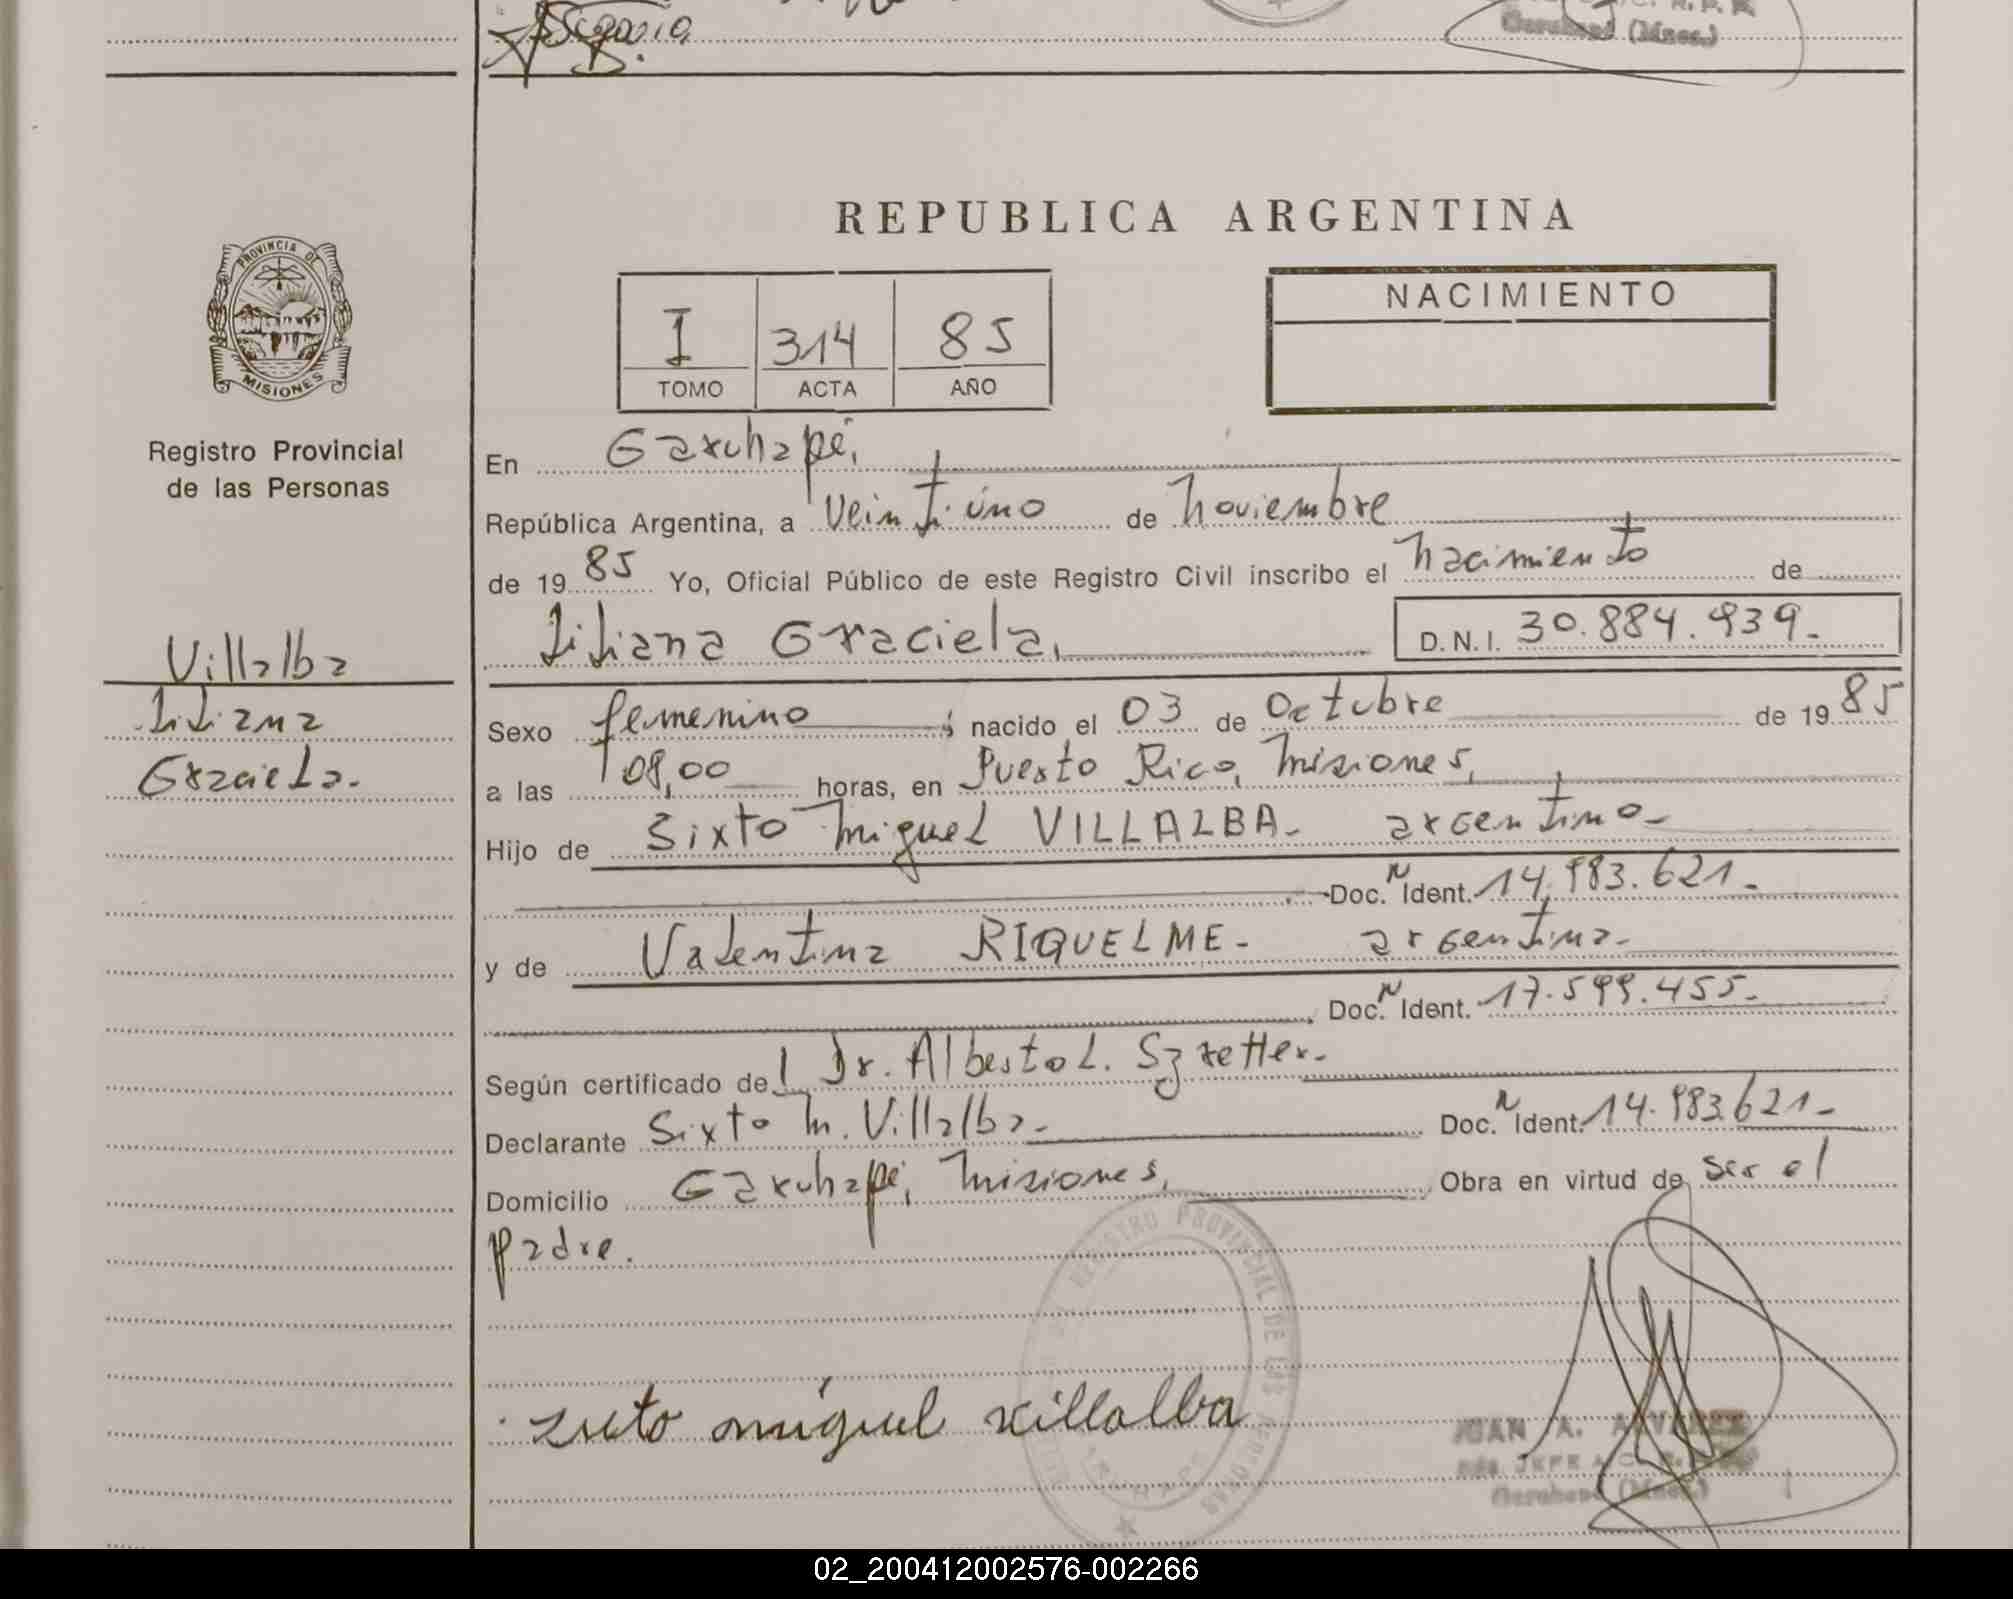 REPUBLICA ARGENTINA
PROVINCIA DE
MISIONES
Registro Provincial
de las Personas
I 314 85
TOMO ACTA AÑO
NACIMIENTO
En Garuhapé,
República Argentina, a veintiúno de noviembre
de 19 85 Yo, Oficial Público de este Registro Civil inscribo el nacimiento de
Liliana Graciela, D.N.I. 30.884.939.-
Villalba
Liliana
Graciela.
Sexo femenino ; nacido el 03 de Octubre de 19 85
a las 08,00 horas, en Puerto Rico, Misiones,
Hijo de Sixto Miguel VILLALBA- argentino-
Doc. N Ident. 14.983.621.-
y de Valentina RIQUELME- argentina-
Doc. N Ident. 17.599.455.-
Según certificado del Dr. Alberto L. Szretter-
Declarante Sixto M. Villalba- Doc. N Ident. 14.983.621-
Domicilio Garuhapé, Misiones, Obra en virtud de ser el
padre.
REGISTRO PROVINCIAL DE LAS PERSONAS
sixto miguel villalba
JUAN A. ALVAREZ
JEFE
Garuhapé (Mnes.)
02_200412002576-002266